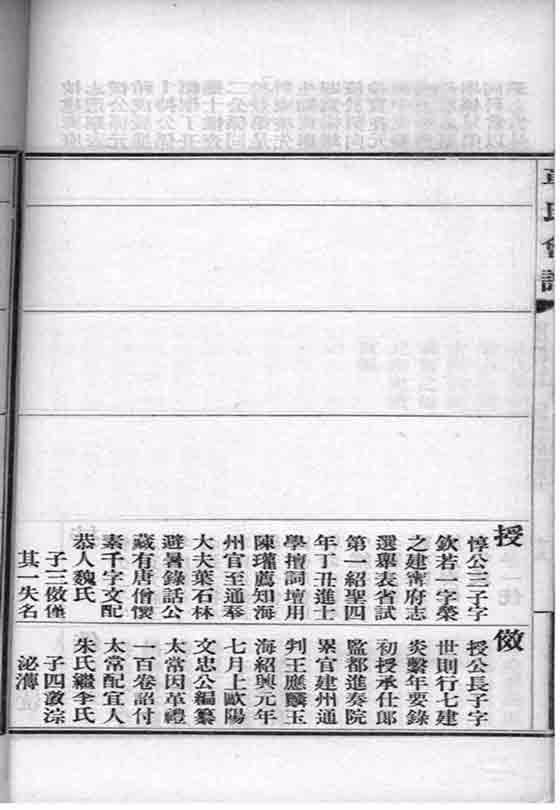 章氏會譜
授
惇公三子字
欽若一字榮
之建甯府志
選舉表省試
第一紹聖四
年丁丑進士
學擅詞壇用
陳瓘薦知海
州官至通奉
大夫葉石林
避暑錄話公
藏有唐僧懷
素千字文配
恭人魏氏
子三傚僅
其一失名
傚
授公長子字
世則行七建
炎繫年要錄
初授承仕郎
監都進奏院
累官建州通
判王應麟玉
海紹興元年
七月上歐陽
文忠公編纂
太常因革禮
一百卷詔付
太常配宜人
朱氏繼李氏
子四澂淙
泌漙